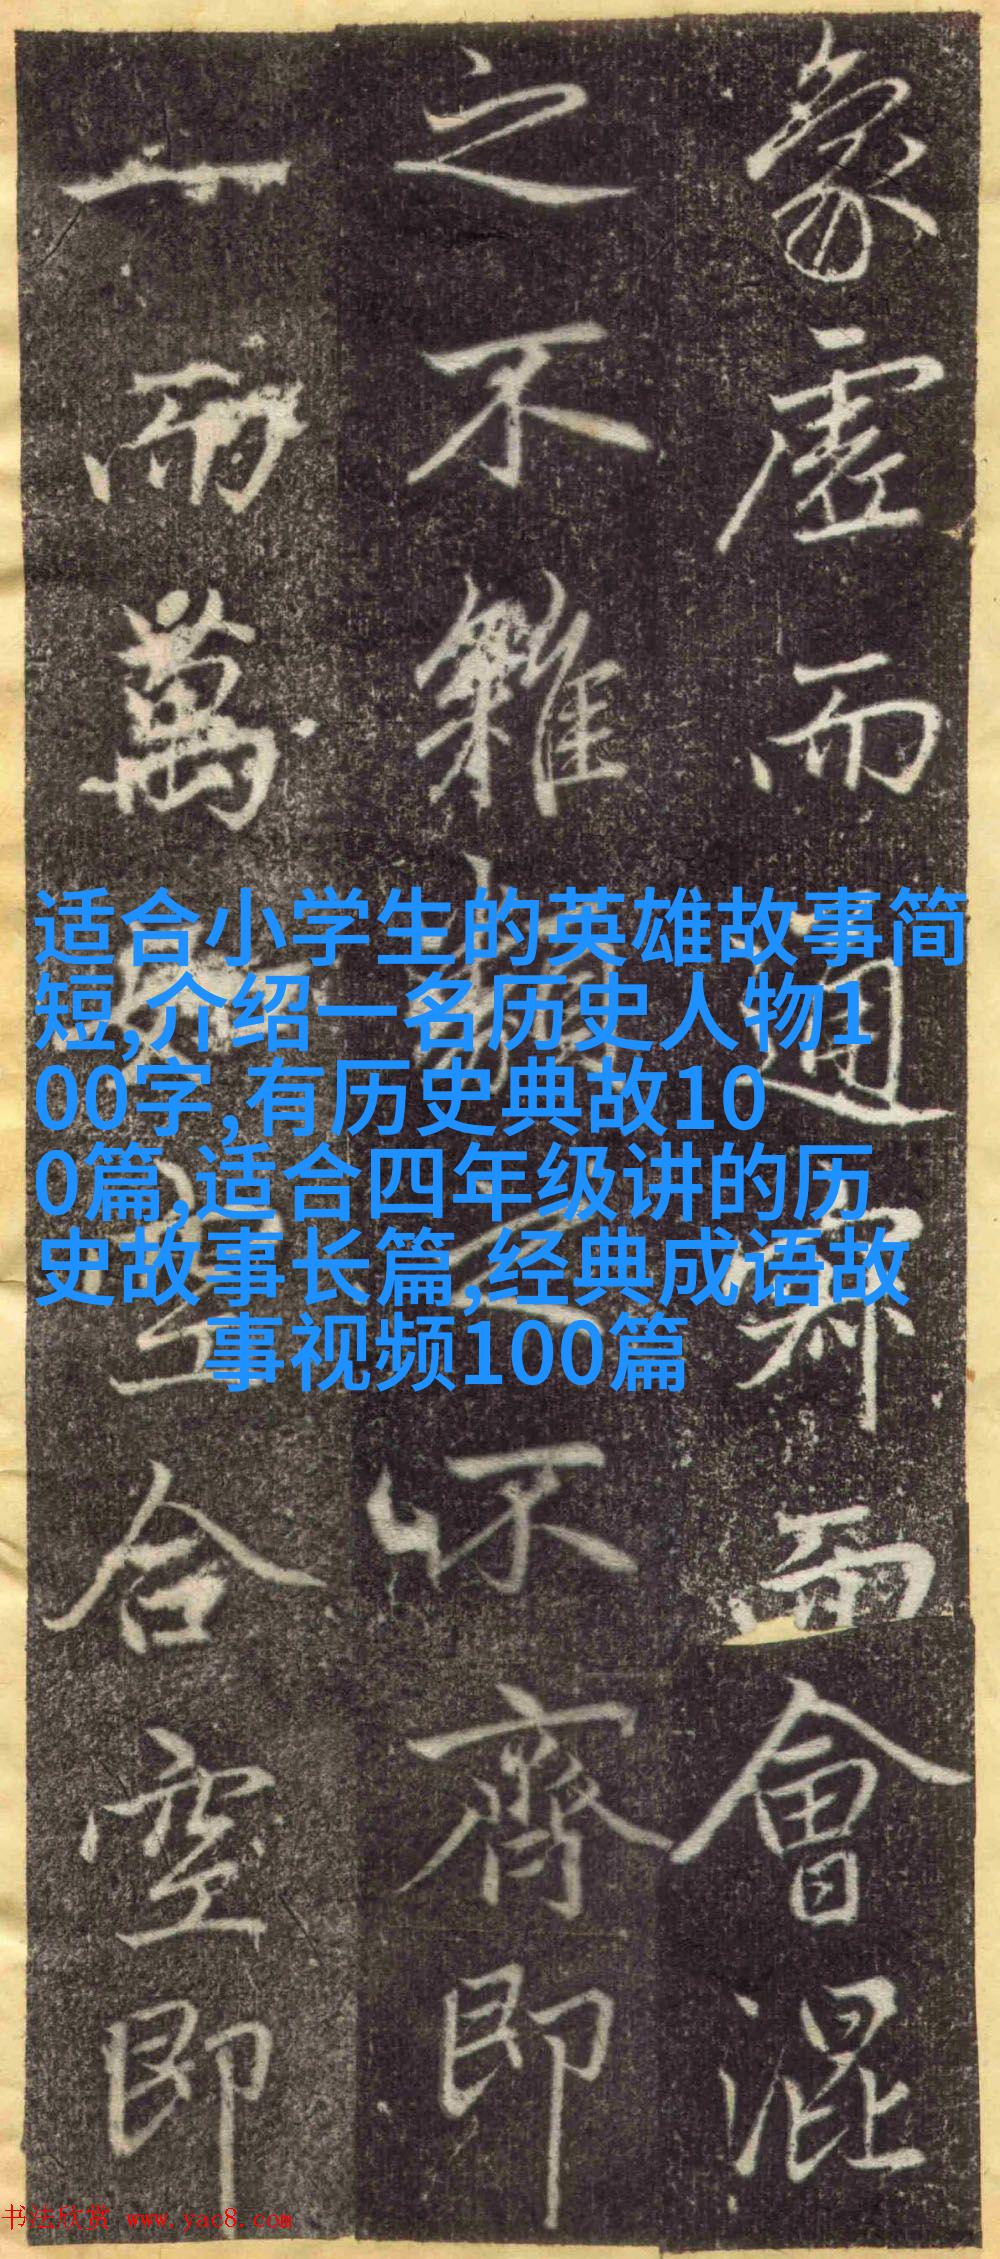 象虛而通寂而會混
之不雜類之不齊即
一而萬
合空即
适合小学生的英雄故事简
短,介绍一名历史人物1
00字,有历史典故10
0篇,适合四年级讲的历
史故事长篇,经典成语故
事视频100篇
书法欣赏 www.yac8.com